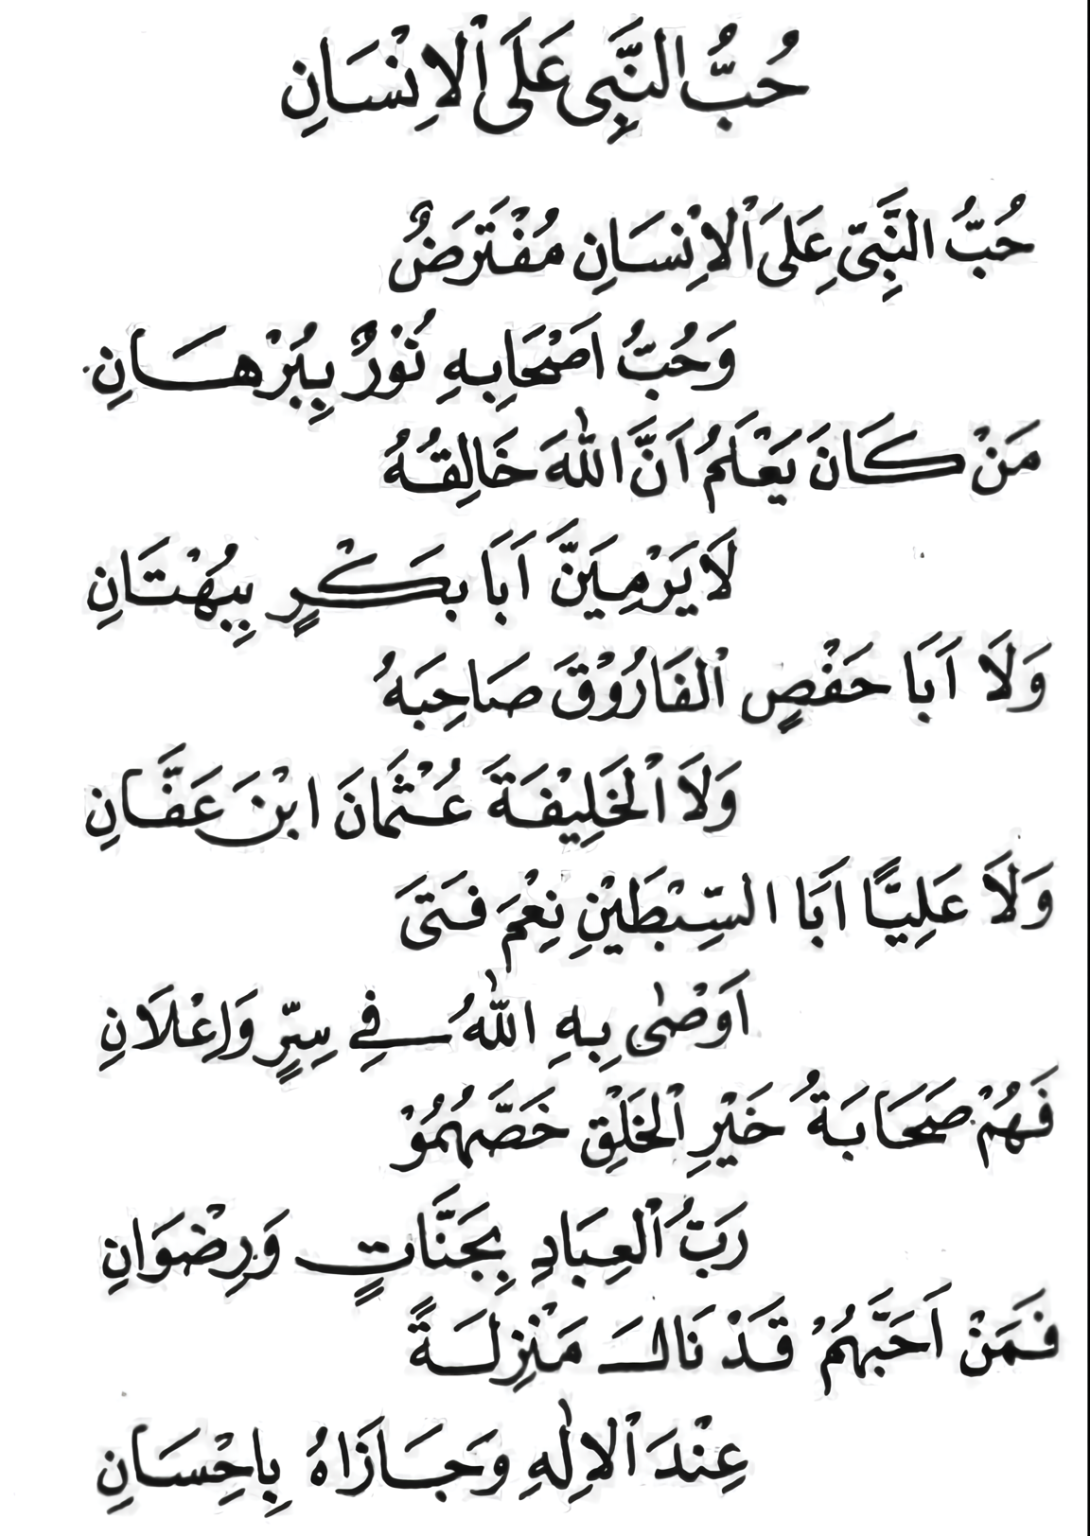 حُبُّ النَّبِى عَلَى ٱلاِنْسَانِ
حُبُّ النَّبِىّ عَلَى ٱلاِنْسَانِ مُفْتَرَضٌ
وَحُبُّ اَصْحَابِهِ نُوْرٌ بِبُرْهَانِ
مَنْ كَانَ يَعْلَمُ اَنَّ اللّٰهَ خَالِقُهُ
لَا يَرْمِيَنَّ اَبَا بَكْرٍ بِبُهْتَانِ
وَلَا اَبَا حَفْصٍ ٱلفَارُوْقَ صَاحِبَهُ
وَلَا ٱلْخَلِيْفَةَ عُثْمَانَ ابْنَ عَفَّانِ
وَلَا عَلِيًّا اَبَا السِّبْطَيْنِ نِعْمَ فَتَى
اَوْصٰى بِهِ اللّٰهُ فِي سِرٍّ وَاِعْلَانِ
فَهُمْ صَحَابَةُ خَيْرِ ٱلْخَلْقِ خَصَّهُمُوْ
رَبُّ ٱلْعِبَادِ بِجَنَّاتٍ وَرِضْوَانِ
فَمَنْ اَحَبَّهُمْ قَدْ نَالَ مَنْزِلَةً
عِنْدَ ٱلاِلٰهِ وَجَازَاهُ بِاِحْسَانِ